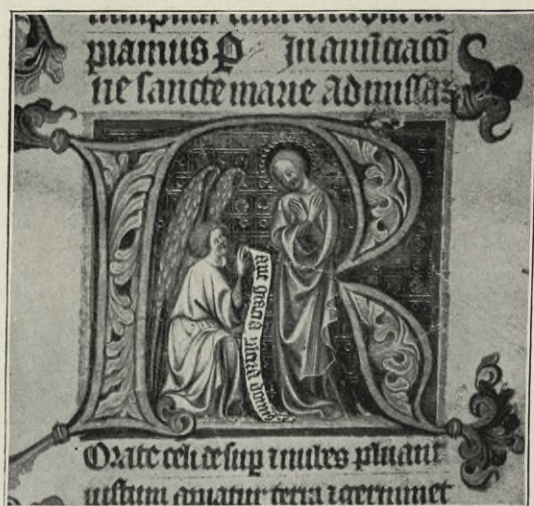 piamus P In anūciacō
ne sancte marie ad missaz
R
ave gracia plena domin
Orate celi desup ⁊ nubes pluant
iustum apiatur terra ⁊ germinet